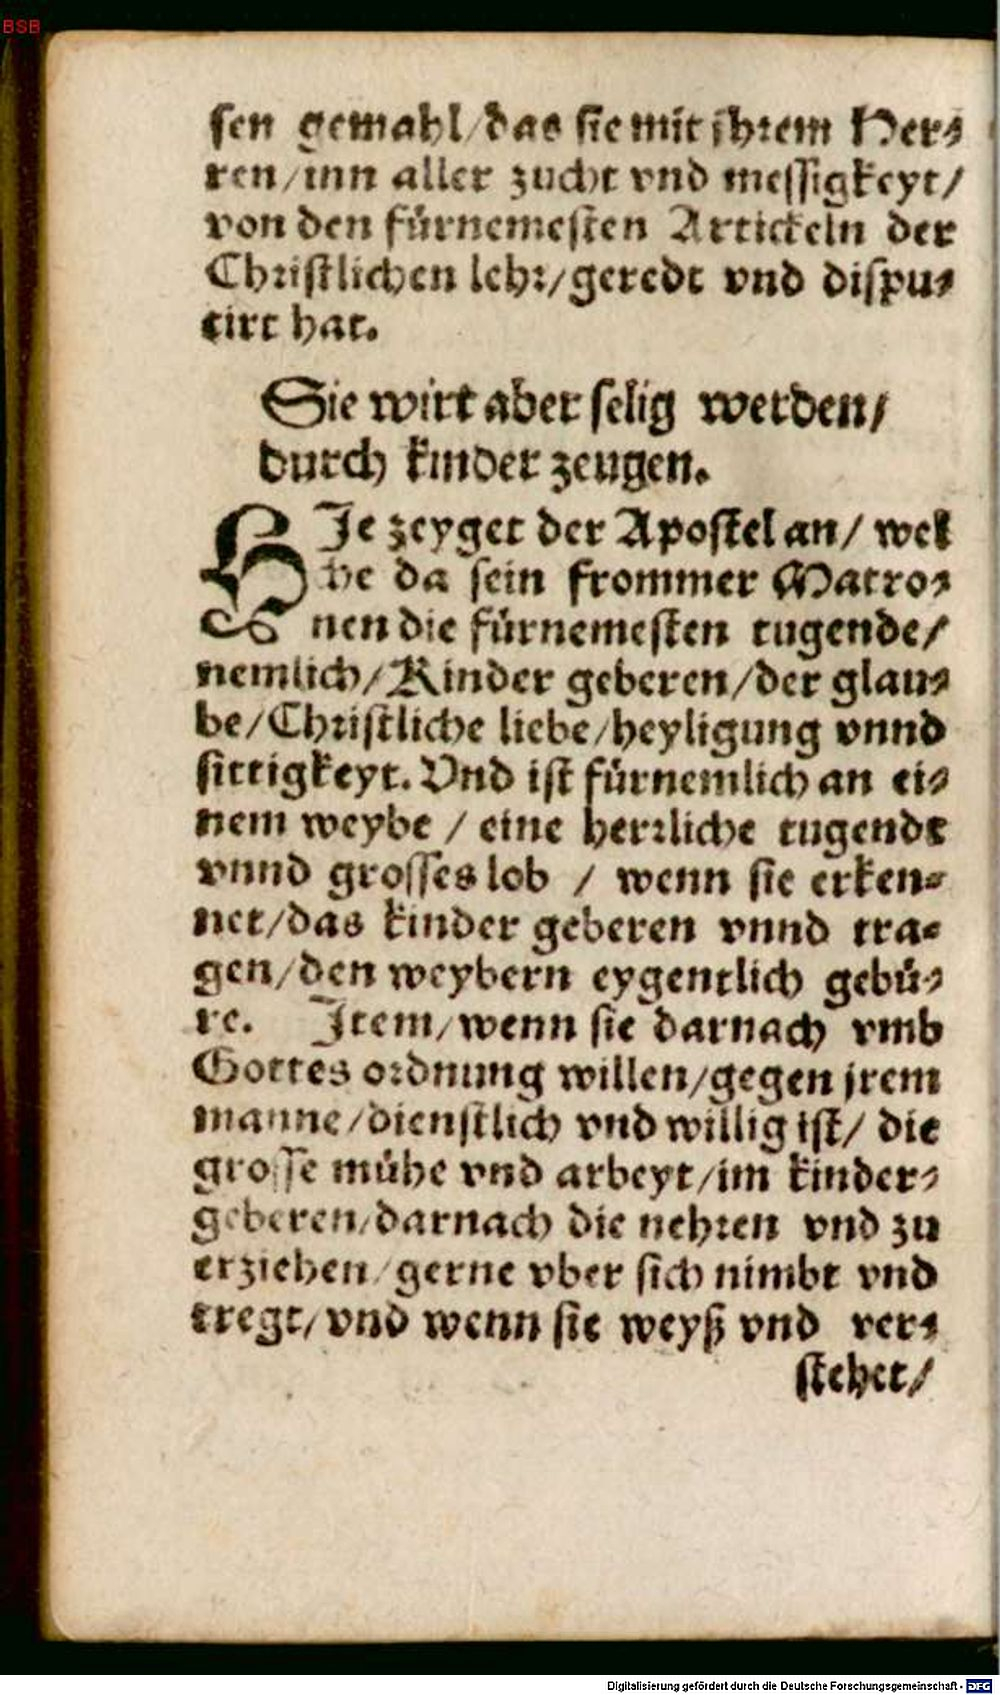 BSB
sen gemahl/das sie mit ihrem Her⸗
ren/inn aller zucht vnd messigkeyt/
von den fürnemesten Artickeln der
Christlichen lehr/geredt vnd dispu⸗
tirt hat.
Sie wirt aber selig werden/
durch kinder zeugen.
HJe zeyget der Apostel an/ wel
che da sein frommer Matro⸗
nen die fürnemesten tugende/
nemlich/Kinder geberen/der glau⸗
be/Christliche liebe/heyligung vnnd
sittigkeyt. Vnd ist fürnemlich an ei⸗
nem weybe / eine herrliche tugendt
vnnd grosses lob / wenn sie erken⸗
net/das kinder geberen vnnd tra⸗
gen/den weybern eygentlich gebü⸗
re. Jtem/wenn sie darnach vmb
Gottes ordnung willen/gegen jrem
manne/dienstlich vnd willig ist/ die
grosse mühe vnd arbeyt/im kinder⸗
geberen/darnach die nehren vnd zu
erziehen/gerne vber sich nimbt vnd
tregt/vnd wenn sie weyß vnd ver⸗
stehet/
Digitalisierung gefördert durch die Deutsche Forschungsgemeinschaft - DFG